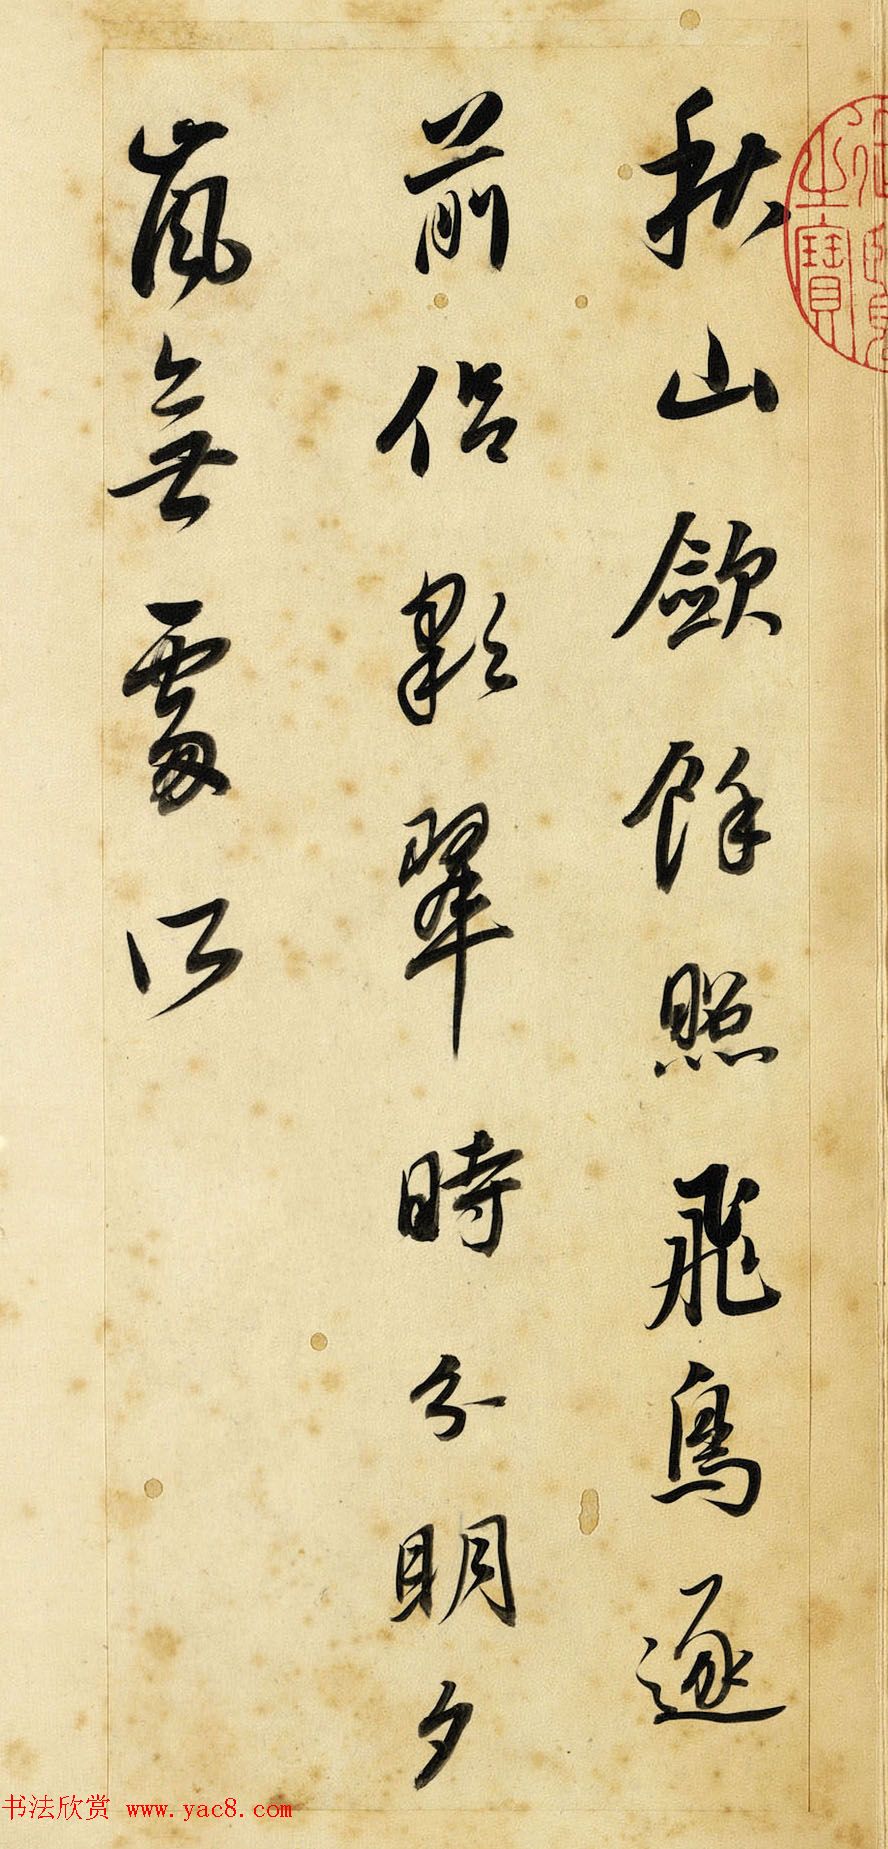 之寶
秋山歛餘照飛鳥逐
前侶彩翠時分明夕
嵐無處所
书法欣赏 www.yac8.com